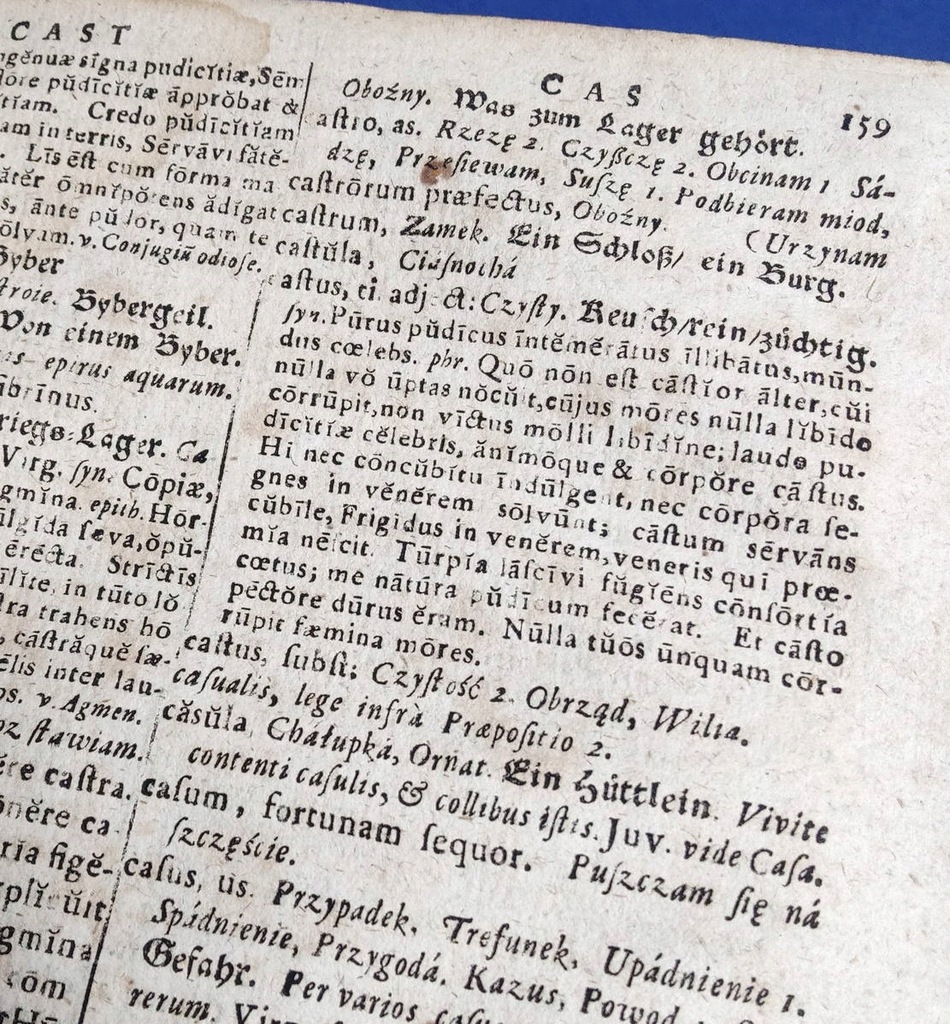 CAST
ngĕnuæ sīgna pudicĭtiæ, Sēm
lōre pŭdīcĭtĭæ āpprŏbat &
Credo pŭdīcĭtĭam
am in terris, Sērvāvi fătē-
Līs ēst cum fōrma ma
ātĕr ōmnĭpŏtens ădĭgat
ānte pŭdor, quam te
ōlvam. v. Conjugiũ odiose.
Byber
Bybergeil.
Von einem Byber.
epirus aquarum.
riegs-Lager. Ca
Virg. ſyn. Cōpiæ,
gmĭna. epith. Hŏr-
ūlgĭda ſæva, ŏpŭ-
ērēcta. Strīctīs
īlĭte, in tūto lŏ
ra trahens hō
cāſtrăque ſæ-
ēlis inter lau-
v. Agmen.
ſtawiam.
caſtra.
ōnĕre ca-
rĭa fĭgĕ-
plĭcŭĭt
gmĭna
cōm
CAS 159
Oboźny. Was zum Lager gehört.
aſtro, as. Rzezę 2. Czyſzczę 2. Obcinam 1 Sá-
dzę, Prześiewam, Suſzę 1. Podbieram miod,
caſtrōrum præfectus, Oboźny. (Urzynam
caſtrum, Zamek. Ein Schloß/ ein Burg.
caſtŭla, Ciáſnochá
aſtus, ti. adject: Czyſty. Keuſch/rein/züchtig.
ſyn. Pūrus pŭdīcus īntĕmĕrātus īllĭbātus, mūn-
dus cœlebs. phr. Quō nōn eſt cāſtĭor ālter, cŭi
nūlla vŏluptas nŏcŭit, cūjus mōres nūlla lĭbīdo
cōrrūpit, non vīctus mōlli lĭbīdĭne; laude pu-
dīcĭtĭæ cĕlebris, ănĭmōque & cōrpŏre cāſtus.
Hi nec cōncŭbĭtu īndūlgent, nec cōrpŏra ſe-
gnes in vĕnĕrem sōlvūnt; cāſtum sērvāns
cŭbīle, Frigĭdus in venĕrem, veneris qui præ-
mĭa nēſcit. Tūrpĭa lāſcīvi fŭgĭēns cōnſōrtĭa
cœtus; me nātūra pŭdīcum fecĕrat. Et cāſto
pēctŏre dūrus ĕram. Nūlla tŭōs ūnquam cōr-
rūpit fæmina mōres.
caſtus, ſubſt: Czyſtość 2. Obrząd, Wilia.
caſualis, lege infrà Præpoſitio 2.
căsŭla, Cháłupká, Ornat. Ein Hüttlein. Vivite
contenti caſulis, & collibus iſtis. Juv. vide Caſa.
caſum, fortunam ſequor. Puſzczam ſię ná
ſzczęście.
caſus, ūs. Przypadek, Trefunek, Upádnienie 1.
Spádnienie, Przygodá. Kazus, Powod
Gefahr. Per varios caſus
rerum. Virg.